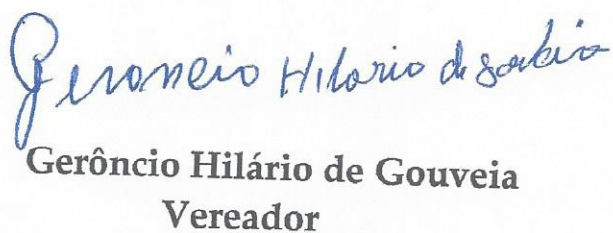 Geroncio Hilario de Gouveia
Gerôncio Hilário de Gouveia
Vereador